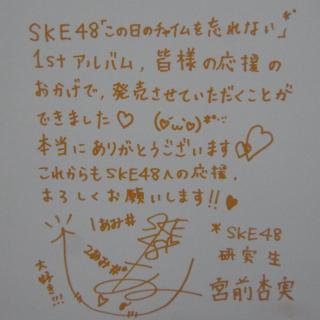 SKE48「この日のチャイムを忘れない」
1stアルバム,皆様の応援の
おかげで,発売させていただくことが
できました♡ (♡'ω'♡)
本当にありがとうございます♡
これからもSKE48への応援,
よろしくお願いします!!♥
1あみ#
2あみ#
大好き!!!
*SKE48
研究生
宮前杏実